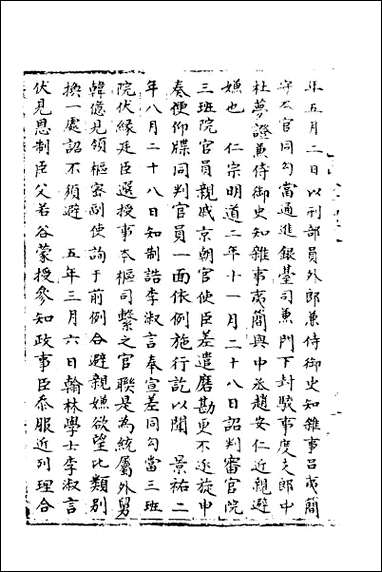 年五月二日以刑部員外郎兼侍御史知雜事呂夷簡
官同勾當通進銀臺司兼門下封駮事度支郎中
杜夢證兼侍御史知雜事夷簡與中丞趙安仁近親避
嫌也 仁宗明道二年十一月二十八日詔判審官院
三班院官員親戚京朝官使臣差遣磨勘更不逐旋申
奏便仰牒同判官員一面依例施行訖以聞 景祐二
年八月二十八日知制誥李淑言奉宣差同勾當三班
院伏緣廷臣選授事本樞司繫之官聯是為統屬外舅
韓億見領樞密副使詢于前例合避親嫌欲望比類別
換一處詔不須避 五年三月六日翰林學士李淑言
伏見恩制臣父若谷蒙授參知政事臣忝服近列理合